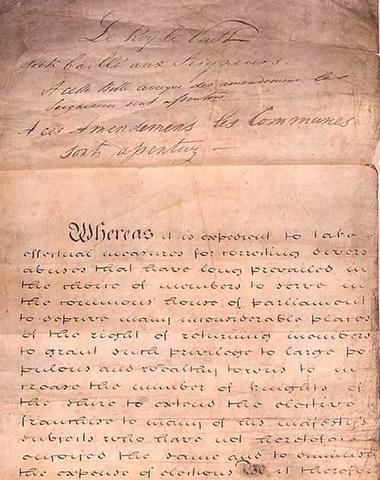 Le Roy le Veult
Soit baillé aux Seigneurs
A cette Bille avecque des amendemens les
Seigneurs sont assentus
A ces Amendemens les Communes
sont assentuz —
Whereas it is expedient to take
effectual measures for correcting divers
abuses that have long prevailed in
the choice of members to serve in
the commons house of parliament
to deprive many inconsiderable places
of the right of returning members
to grant such privilege to large po
pulous and wealthy towns to in
crease the number of knights of
the shire to extend the elective
franchise to many of his majesty's
subjects who have not heretofore
enjoyed the same and to diminish
the expense of elections Be it therefore